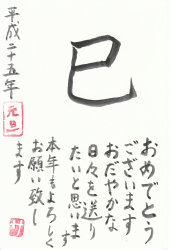 巳
おめでとう
ございます
おだやかな
日々を送り
たいと思いま
す
本年もよろしく
お願い致し
ます
平成二十五年
元旦